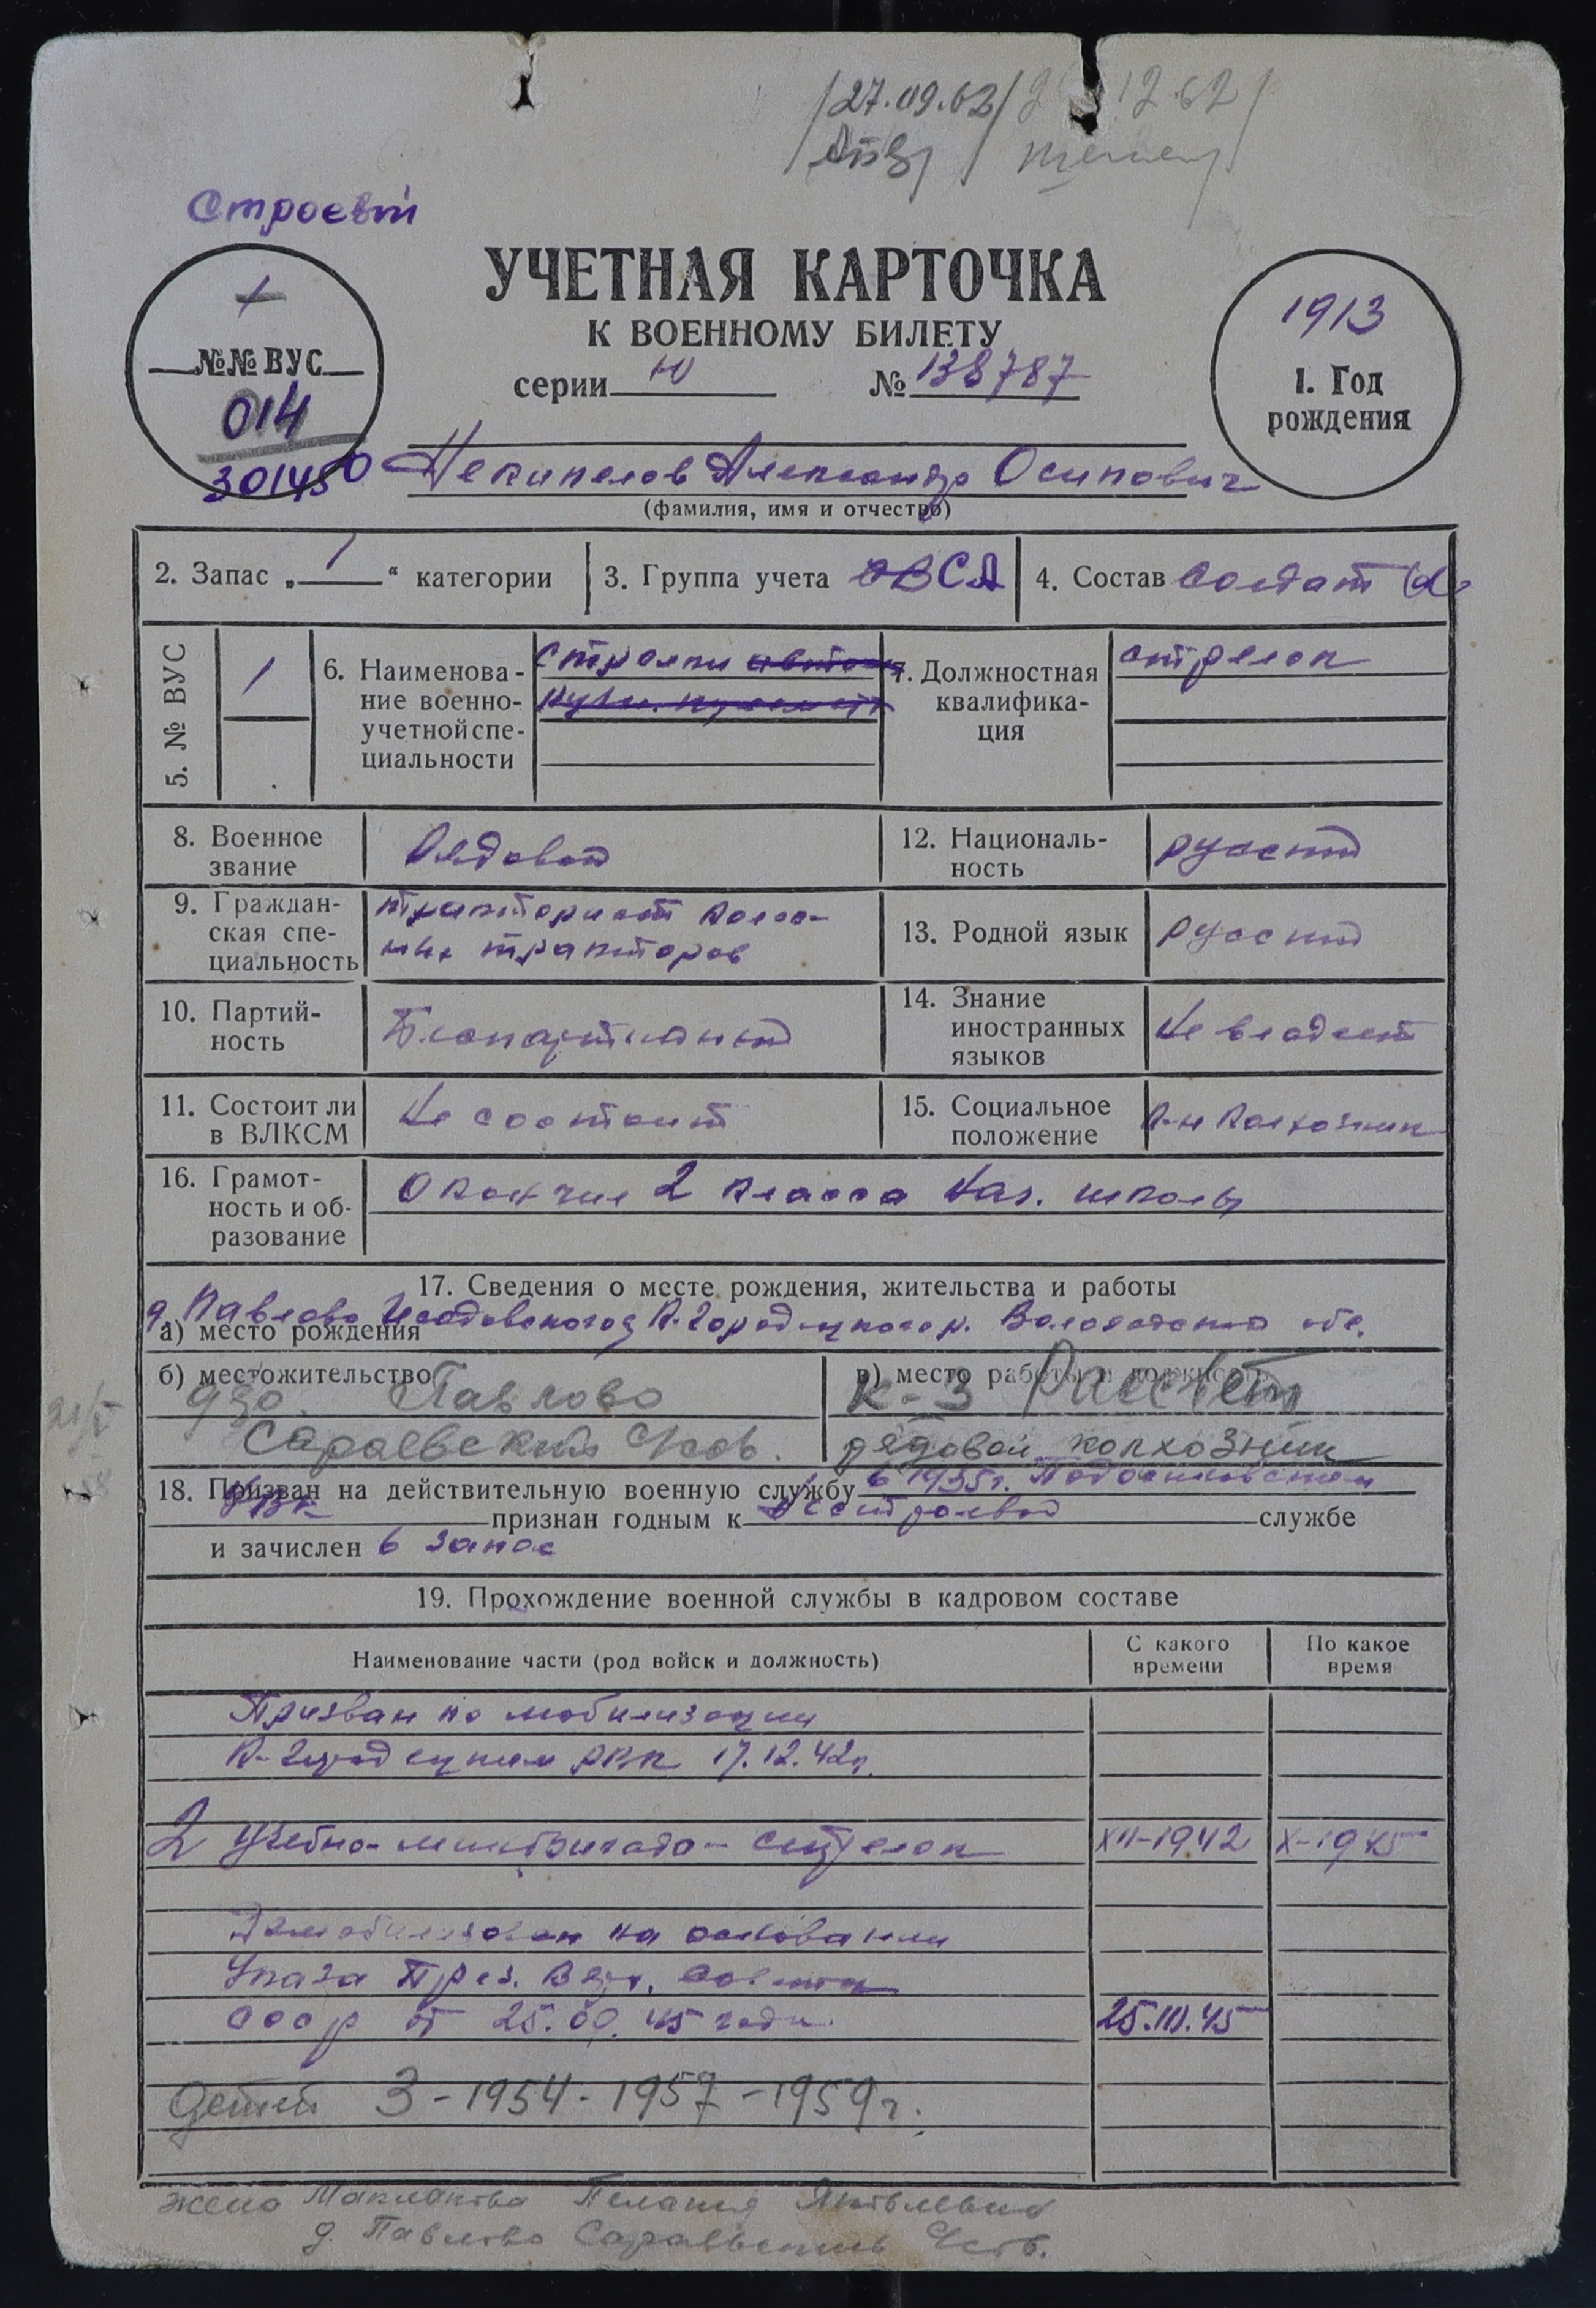 /27.09.62/ 12.62/
Строевой
УЧЕТНАЯ КАРТОЧКА
К ВОЕННОМУ БИЛЕТУ
серии Ю № 138787
1
№№ ВУС
014
301450
1913
1. Год
рождения
Некипелов Александр Осипович
(фамилия, имя и отчество)
2. Запас „1“ категории
3. Группа учета ВСА
4. Состав Солдат
5. № ВУС 1
6. Наименова-
ние военно-
учетной спе-
циальности
Стрелки
7. Должностная
квалифика-
ция
стрелок
8. Военное
звание
Рядовой
12. Националь-
ность
русский
9. Граждан-
ская спе-
циальность
тракторист колес-
ных тракторов
13. Родной язык
русский
10. Партий-
ность
Беспартийный
14. Знание
иностранных
языков
Не владеет
11. Состоит ли
в ВЛКСМ
Не состоит
15. Социальное
положение
К-н Колхозник
16. Грамот-
ность и об-
разование
Окончил 2 класса Нач. школы
17. Сведения о месте рождения, жительства и работы
д. Павлово К-Городецкого р. Вологодской обл.
а) место рождения
б) местожительство
дер. Павлово
Сараевский с/сов.
в) место работы и должность
к-з Рассвет
рядовой колхозник
18. Призван на действительную военную службу в 1935г. Подосиновским
РВК признан годным к нестроевой службе
и зачислен в запас
19. Прохождение военной службы в кадровом составе
Наименование части (род войск и должность)
С какого
времени
По какое
время
Призван по мобилизации
К-Городецким РВК 17.12.42г.
2 Учебно- бригада - стрелок XII-1942 X-1945
Демобилизован на основании
Указа През. Верх. Совета
СССР от 25.09.45 года. 25.10.45
Детей 3-1954-1957-1959г.
жена Пелагия Яковлевна
д. Павлово Сараевский с/сов.